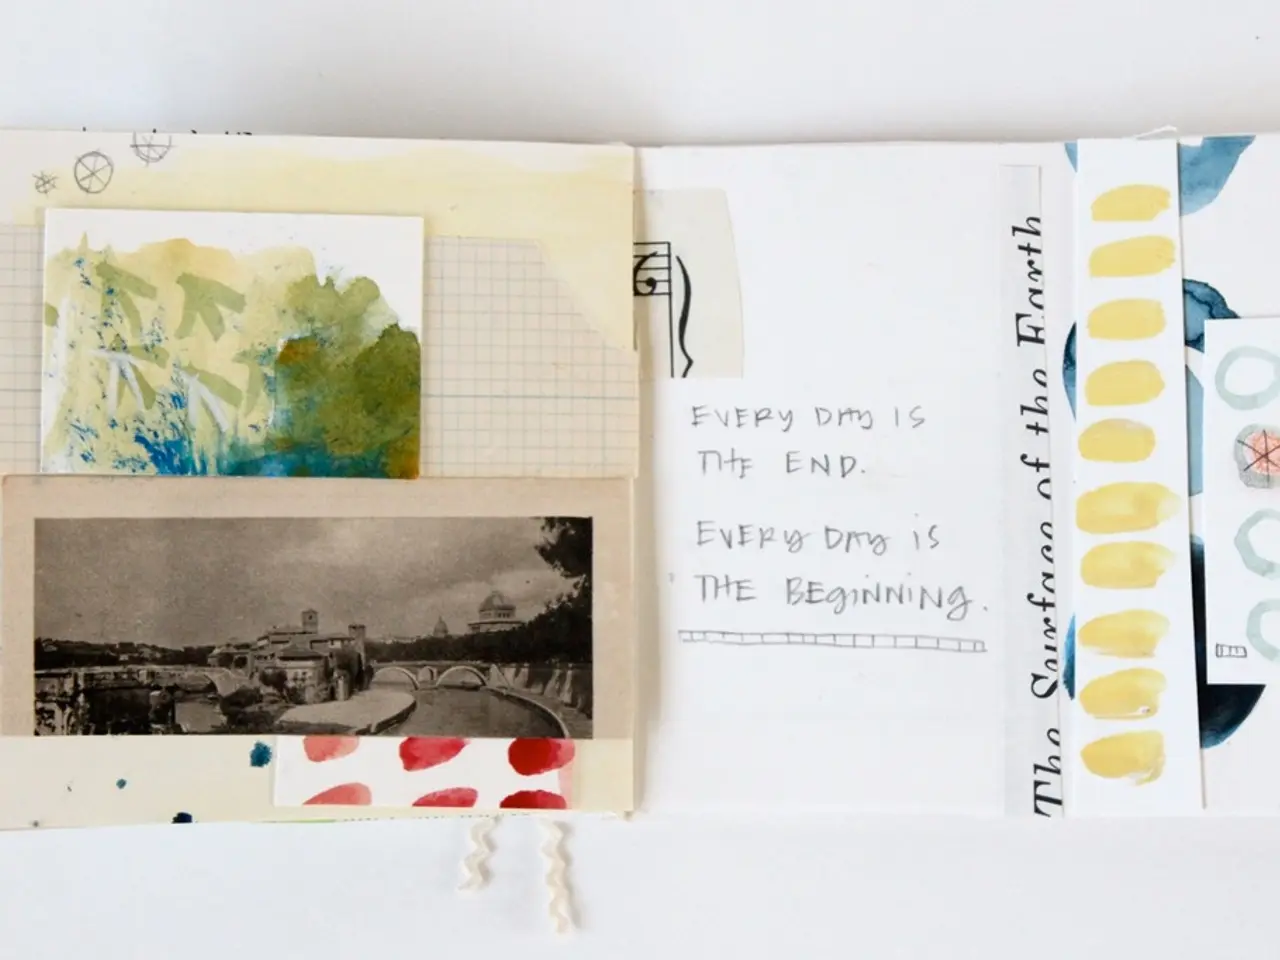 EVERY DAY IS
THE END.
EVERY DAY IS
THE BEGINNING.
The Surface of the Earth